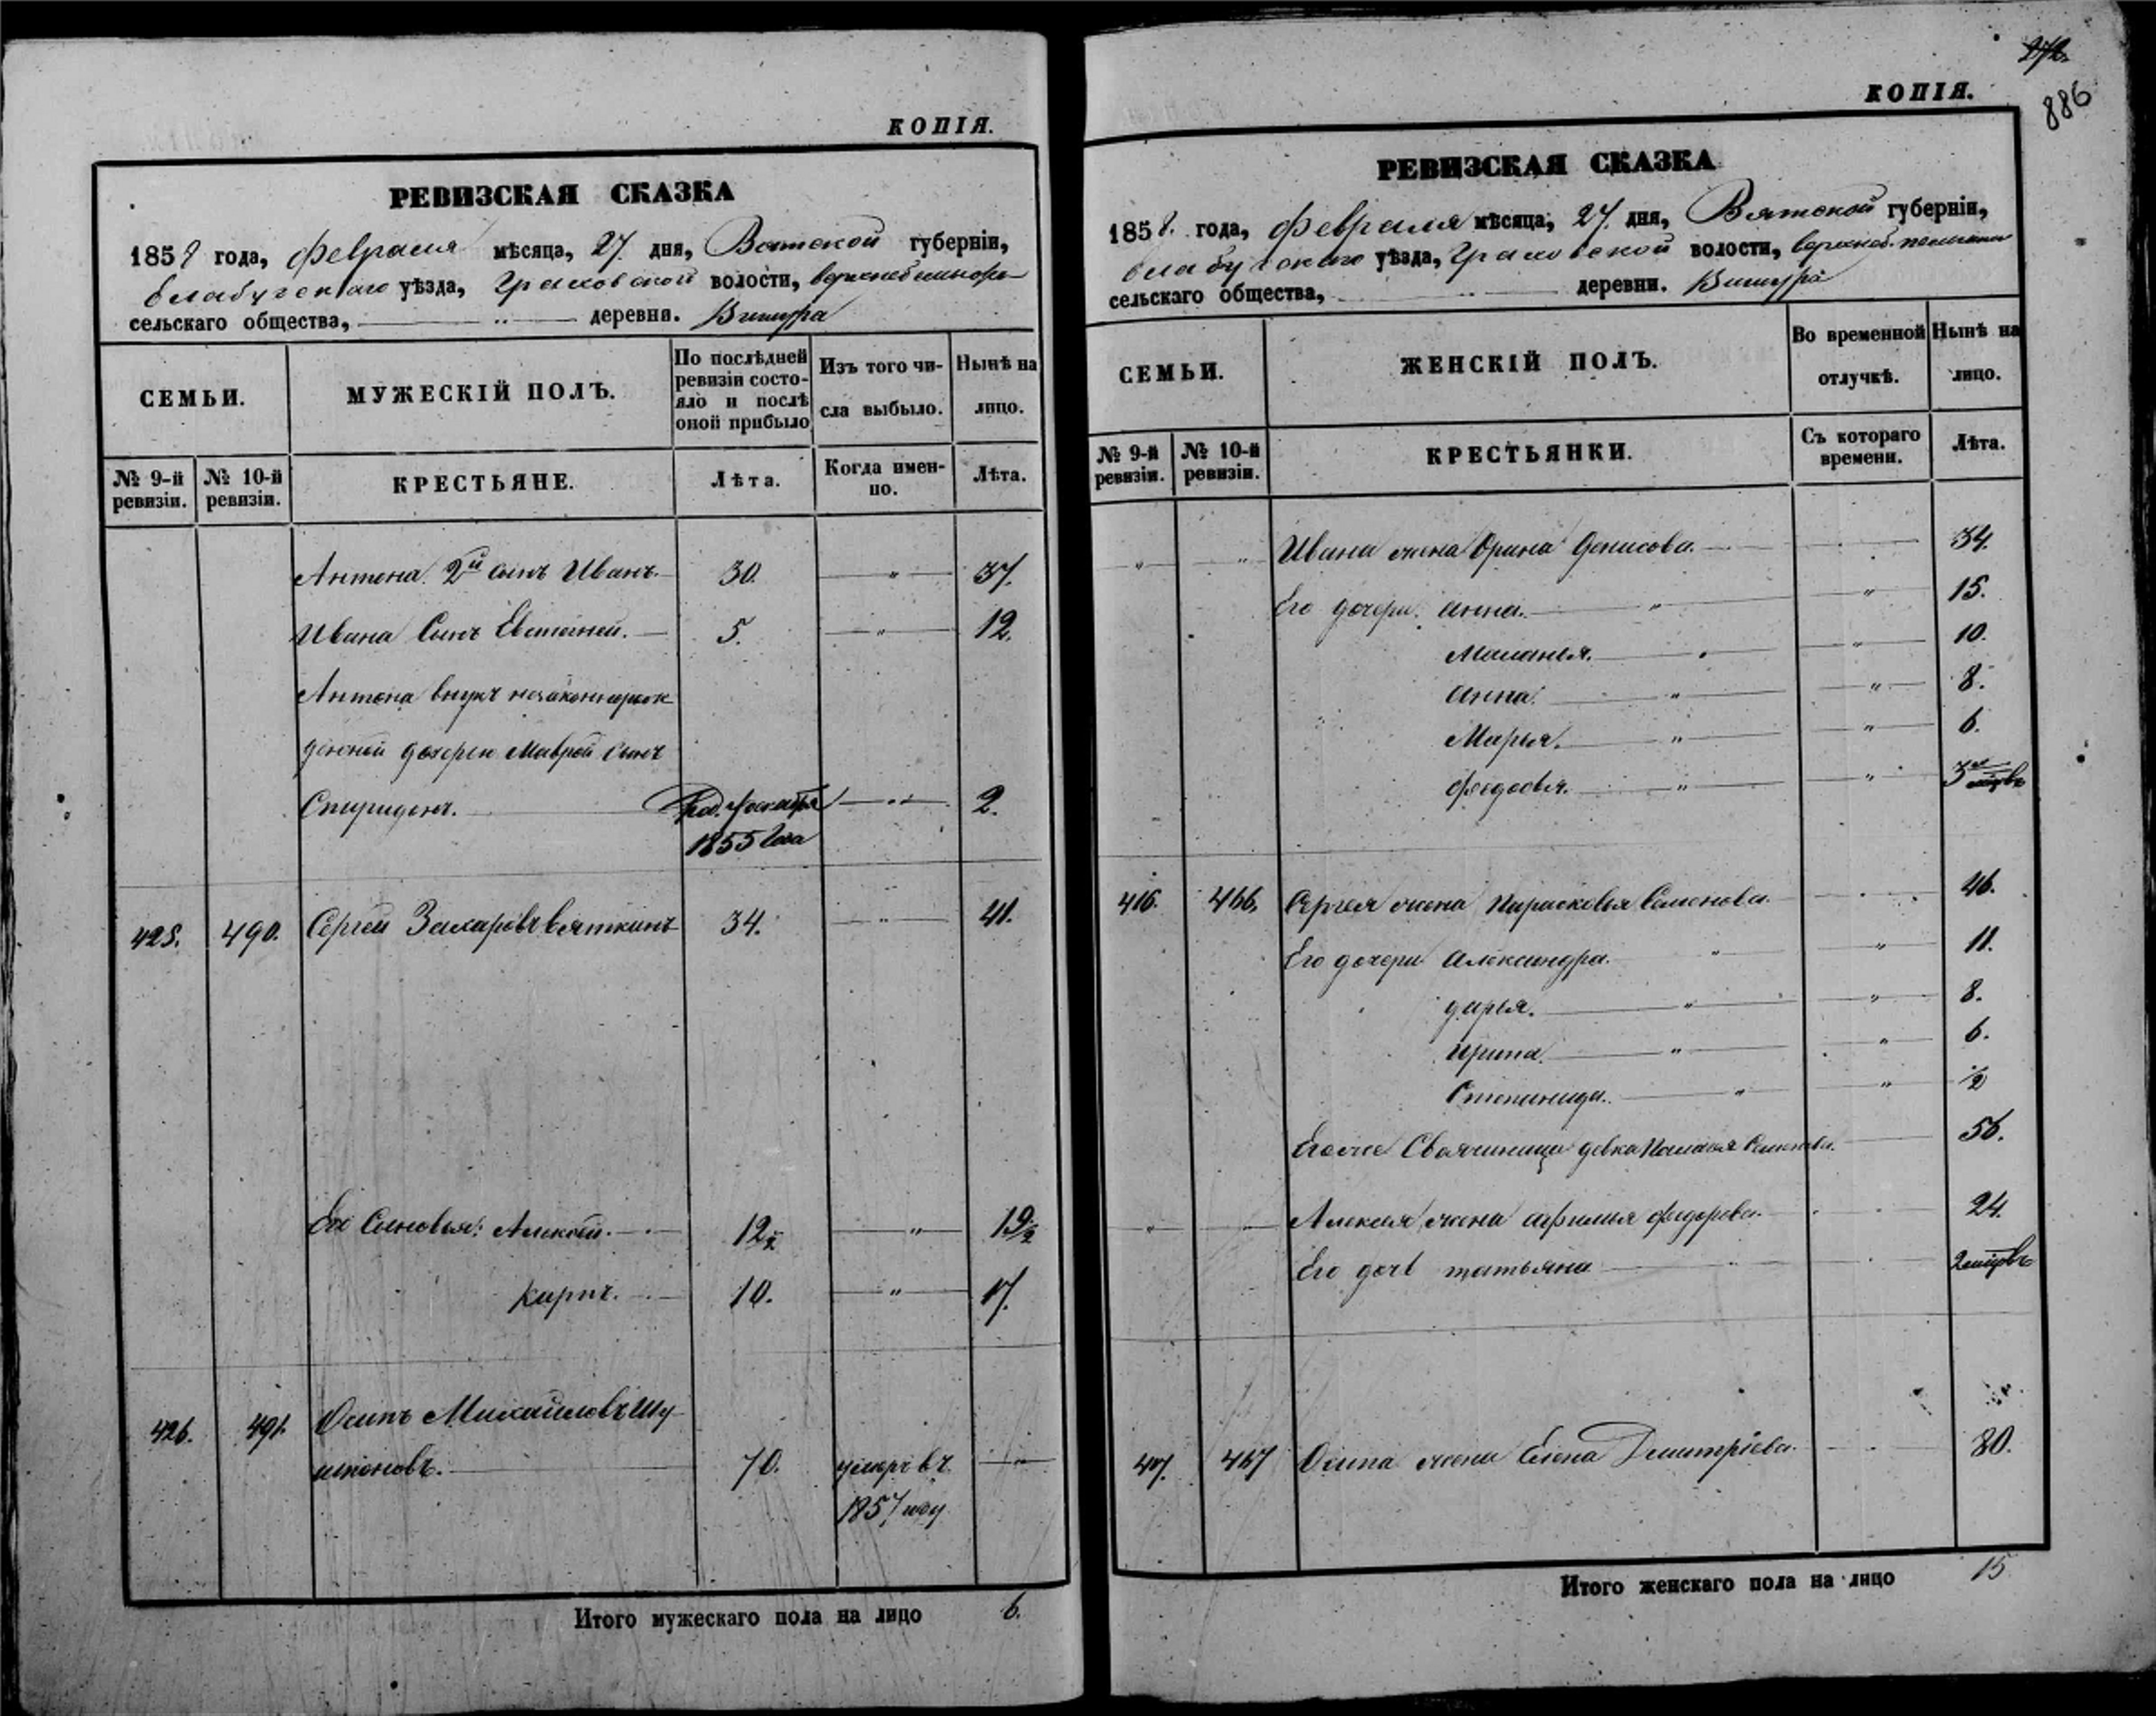 КОПІЯ.
РЕВИЗСКАЯ СКАЗКА
1858 года, Февраля мѣсяца, 27. дня, Вятской губерніи,
Елабугскаго уѣзда, Граховской волости,
сельскаго общества, — „ — деревни.
СЕМЬИ.
МУЖЕСКІЙ ПОЛЪ.
По послѣдней ревизіи состо-
яло и послѣ оной прибыло
Изъ того чи-
сла выбыло.
Нынѣ на лицо.
№ 9-й ревизіи.
№ 10-й ревизіи.
КРЕСТЬЯНЕ.
Лѣта.
Когда имен-
но.
Лѣта.
Антона 2й сынъ Иванъ. 30. — „ — 37.
Ивана Сынъ Евстегней. — 5. — „ — 12.
Антона внукъ незаконнорож
денной дочерью Маврой Сынъ
Спиридонъ. — Род. декабря — „ — 2.
1855 года
425. 490. Сергей Захаровъ Вяткинъ 34. — „ — 41.
Его Сыновья: Алексей. — 12½ — „ — 19½
Карпъ. — 10. — „ — 17.
426. 491. Осипъ Михайловъ Шу-
70. умеръ въ — „ —
1857 году
Итого мужескаго пола на лицо 6.
272.
886
КОПІЯ.
РЕВИЗСКАЯ СКАЗКА
1858. года, Февраля мѣсяца, 27. дня, Вятской губерніи,
Елабугскаго уѣзда, Граховской волости,
сельскаго общества, — „ — деревни.
СЕМЬИ.
ЖЕНСКІЙ ПОЛЪ.
Во временной
отлучкѣ.
Нынѣ на
лицо.
№ 9-й ревизіи.
№ 10-й ревизіи.
КРЕСТЬЯНКИ.
Съ котораго
времени.
Лѣта.
„ „ Ивана жена Орина Денисова. — 34.
Его дочери: Анна. — „ — „ — 15.
Маланья. — „ — „ — 10.
Анна. — „ — „ — 8.
Марья. — „ — „ — 6.
Федосья. — „ — „ — 3
416. 466. Сергея жена Парасковья Семенова — 46.
Его дочери Александра. „ — „ — 11.
Дарья. — „ — „ — 8.
Ирина. — „ — „ — 6.
Степанида. — „ — „ — ½
Егоже Свояченица девка Семенова. — 56.
„ „ Алексея жена Федорова. — 24.
Его дочь Татьяна — 2
417. 467 Осипа жена Елена Дмитріева. — 80.
Итого женскаго пола на лицо 15